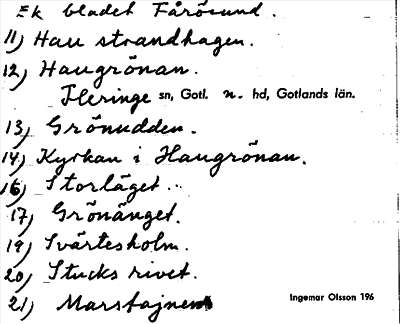 Ek bladet Fårösund.
11) Hau strandhagen.
12) Haugrönan.
Fleringe sn, Gotl. n. hd, Gotlands län.
13) Grönudden.
14) Kyrkan i Haugrönan.
16) Storläget.
17) Grönänget.
19) Svärtesholm.
20) Stucks rivet.
21) Marstajnen
Ingemar Olsson 196